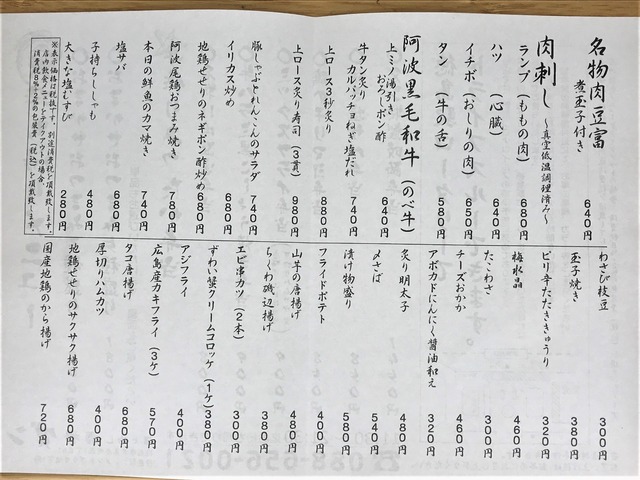 名物肉豆富 640円
煮玉子付き
肉刺し ～真空低温調理済み～
ランプ（ももの肉） 680円
ハツ （心臓） 640円
イチボ（おしりの肉） 650円
タン （牛の舌） 580円
阿波黒毛和牛（のべ牛）
上ミノ湯引き
おろしポン酢 640円
牛タン炙り
カルパッチョねぎ塩だれ 740円
上ロース3秒炙り 880円
上ロース炙り寿司（3貫） 980円
豚しゃぶとれんこんのサラダ 740円
イリカス炒め 680円
地鶏せせりのネギポン酢炒め 680円
阿波尾鶏おつまみ焼き 780円
本日の鮮魚のカマ焼き 740円
塩サバ 680円
子持ちししゃも 480円
大きな塩むすび 280円
※表示価格は税抜です。別途消費税を頂戴致します。
店内飲食メニューをテイクアウトの場合
消費税8％＋2％の包装費（税込）を頂戴致します。
わさび枝豆 300円
玉子焼き 380円
ピリ辛たたききゅうり 320円
梅水晶 460円
たこわさ 300円
チーズおかか 460円
アボカドにんにく醤油和え 320円
炙り明太子 480円
〆さば 540円
漬け物盛り 580円
フライドポテト 400円
山芋の唐揚げ 480円
ちくわ磯辺揚げ 380円
エビ串カツ（2本） 300円
ずわい蟹クリームコロッケ（1ケ）380円
アジフライ 400円
広島産カキフライ（3ケ） 570円
タコ唐揚げ 680円
厚切りハムカツ 400円
地鶏せせりのサクサク揚げ 680円
国産地鶏のから揚げ 720円